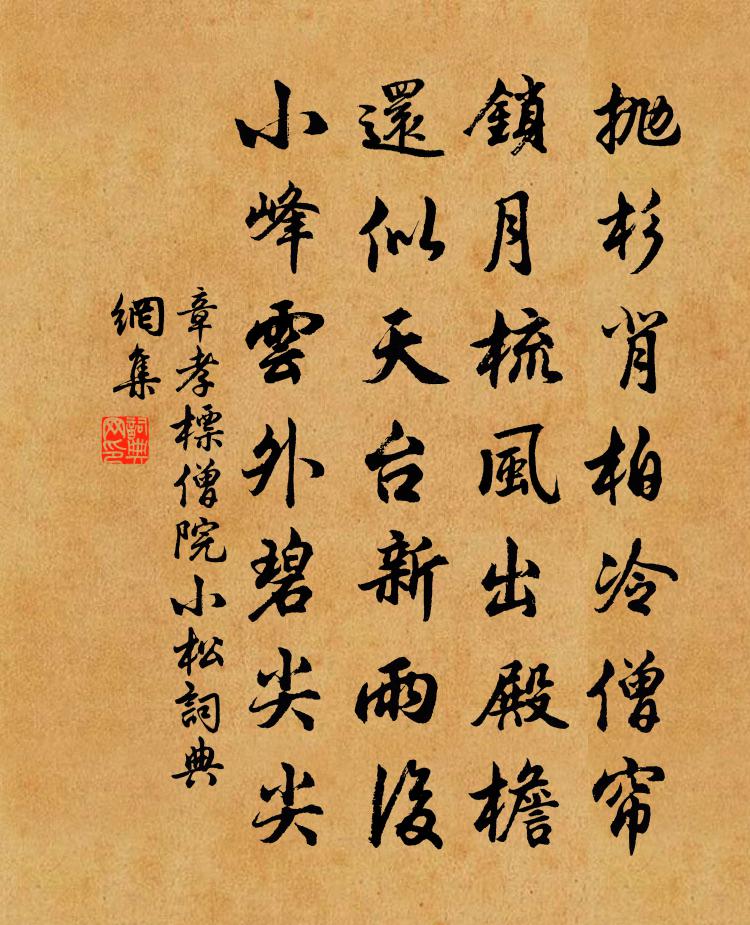 拋杉背柏冷僧帘
鎖月梳風出殿檐
還似天台新雨後
小峰雲外碧尖尖
章孝標僧院小松詞典
網集
詞典网印